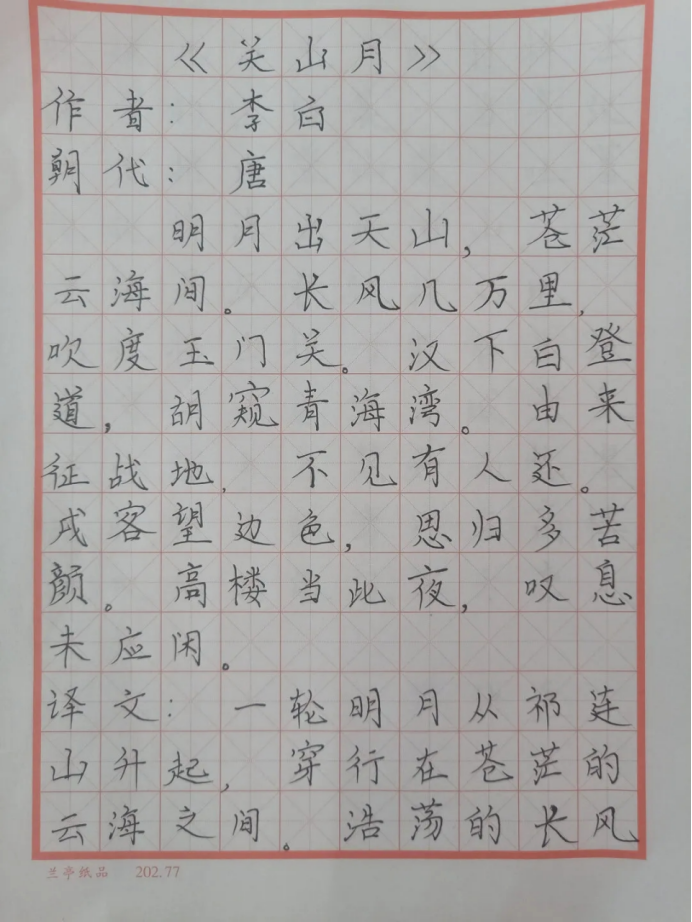 《关山月》
作者：李白
朝代：唐
明月出天山，苍茫
云海间。长风几万里，
吹度玉门关。汉下白登
道，胡窥青海湾。由来
征战地，不见有人还。
戍客望边色，思归多苦
颜。高楼当此夜，叹息
未应闲。
译文：一轮明月从祁连
山升起，穿行在苍茫的
云海之间。浩荡的长风
兰亭纸品 202.77